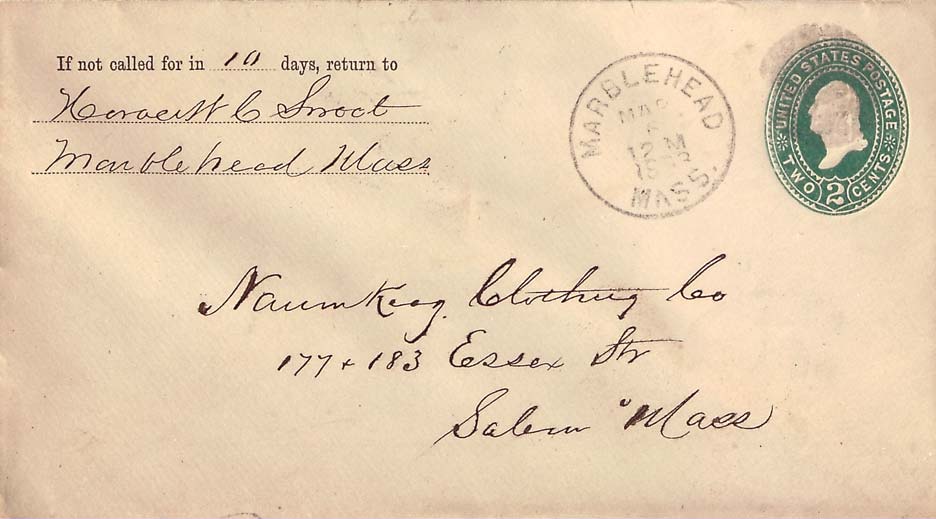 If not called for in 10 days, return to
C Smoot
Marblehead Mass
MARBLEHEAD
MAR
12 M
MASS.
UNITED STATES POSTAGE
TWO 2 CENTS
Naumkeag Clothing Co
177 + 183 Essex Str
Salem Mass